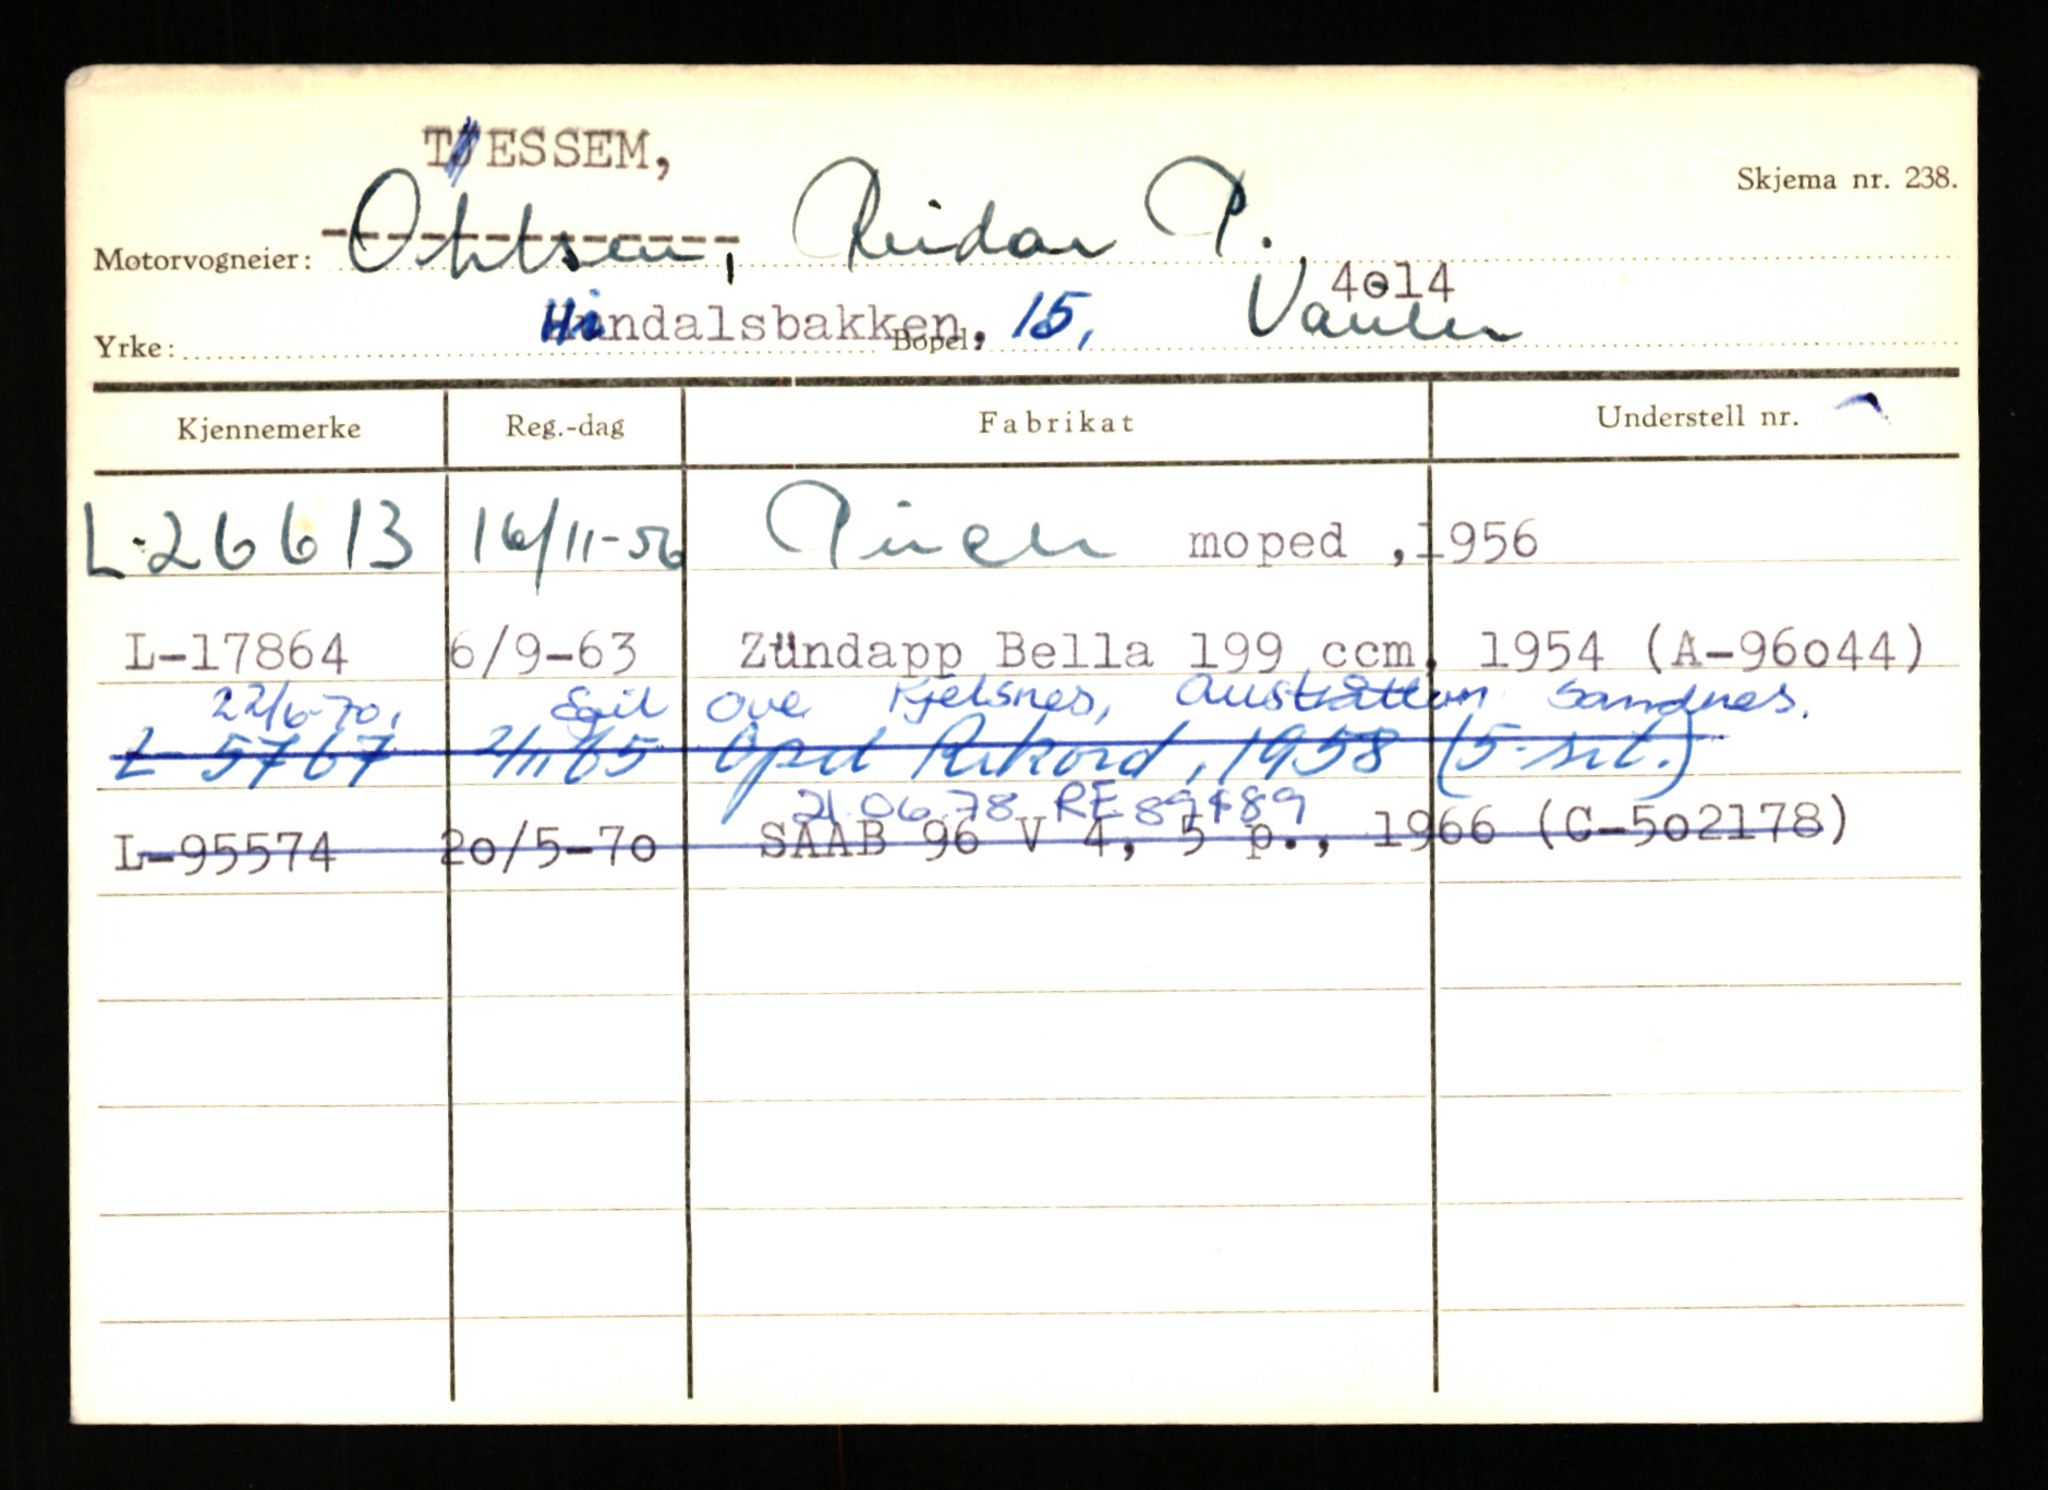 TJESSEM,
Skjema nr. 238.
Motorvogneier: Ohlsen, Reidar P.
4014
Yrke: Hindalsbakken, Bopel: 15, Vaulen
Kjennemerke Reg.-dag Fabrikat Understell nr.
L-26613 16/11-56 Puch moped ,1956
L-17864 6/9-63 Zündapp Bella 199 ccm, 1954 (A-96044)
22/6-70, Egil Ove Kjelsnes, Austråttvn Sandnes.
L-5767 2/11 65 Opel Rekord, 1958 (5-sit.)
21.06.78 RE 89489
L-95574 20/5-70 SAAB 96 V 4, 5 p., 1966 (C-502178)